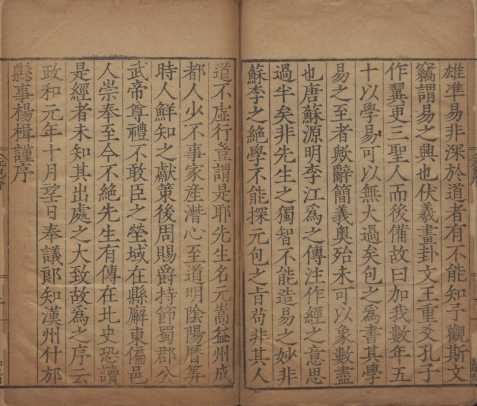 雄準易非深於道者有不能知予觀斯文
竊謂易之興也伏羲畫卦文王重爻孔子
作翼更三聖人而後備故曰加我數年五
十以學易可以無大過矣包之為書其學
易之至者歟辭簡義奥殆未可以象數盡
也唐蘇源明李江為之傳注作經之意思
過半矣非先生之獨智不能造易之妙非
蘇李之絶學不能探元包之㫖苟非其人
道不虛行豈謂是耶先生名元嵩益州成
都人少不事家産潛心至道明陰陽曆筭
時人鮮知之獻策後周賜爵持節蜀郡公
武帝尊禮不敢臣之塋域在縣廨東偏邑
人崇奉至今不絶先生有傳在北史恐讀
是經者未知其出處之大致故為之序云
政和元年十月望日奉議郎知漢州什邡
縣事楊楫謹序